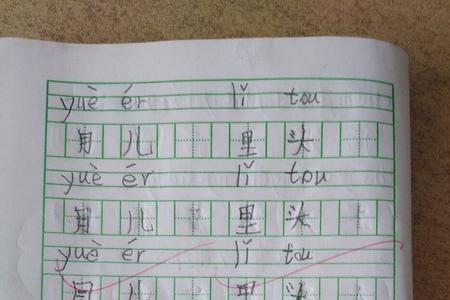 yuè ér lǐ tou
月儿 里头
yuè ér lǐ tou
月儿 里头
yuè ér lǐ tou
月儿 里头